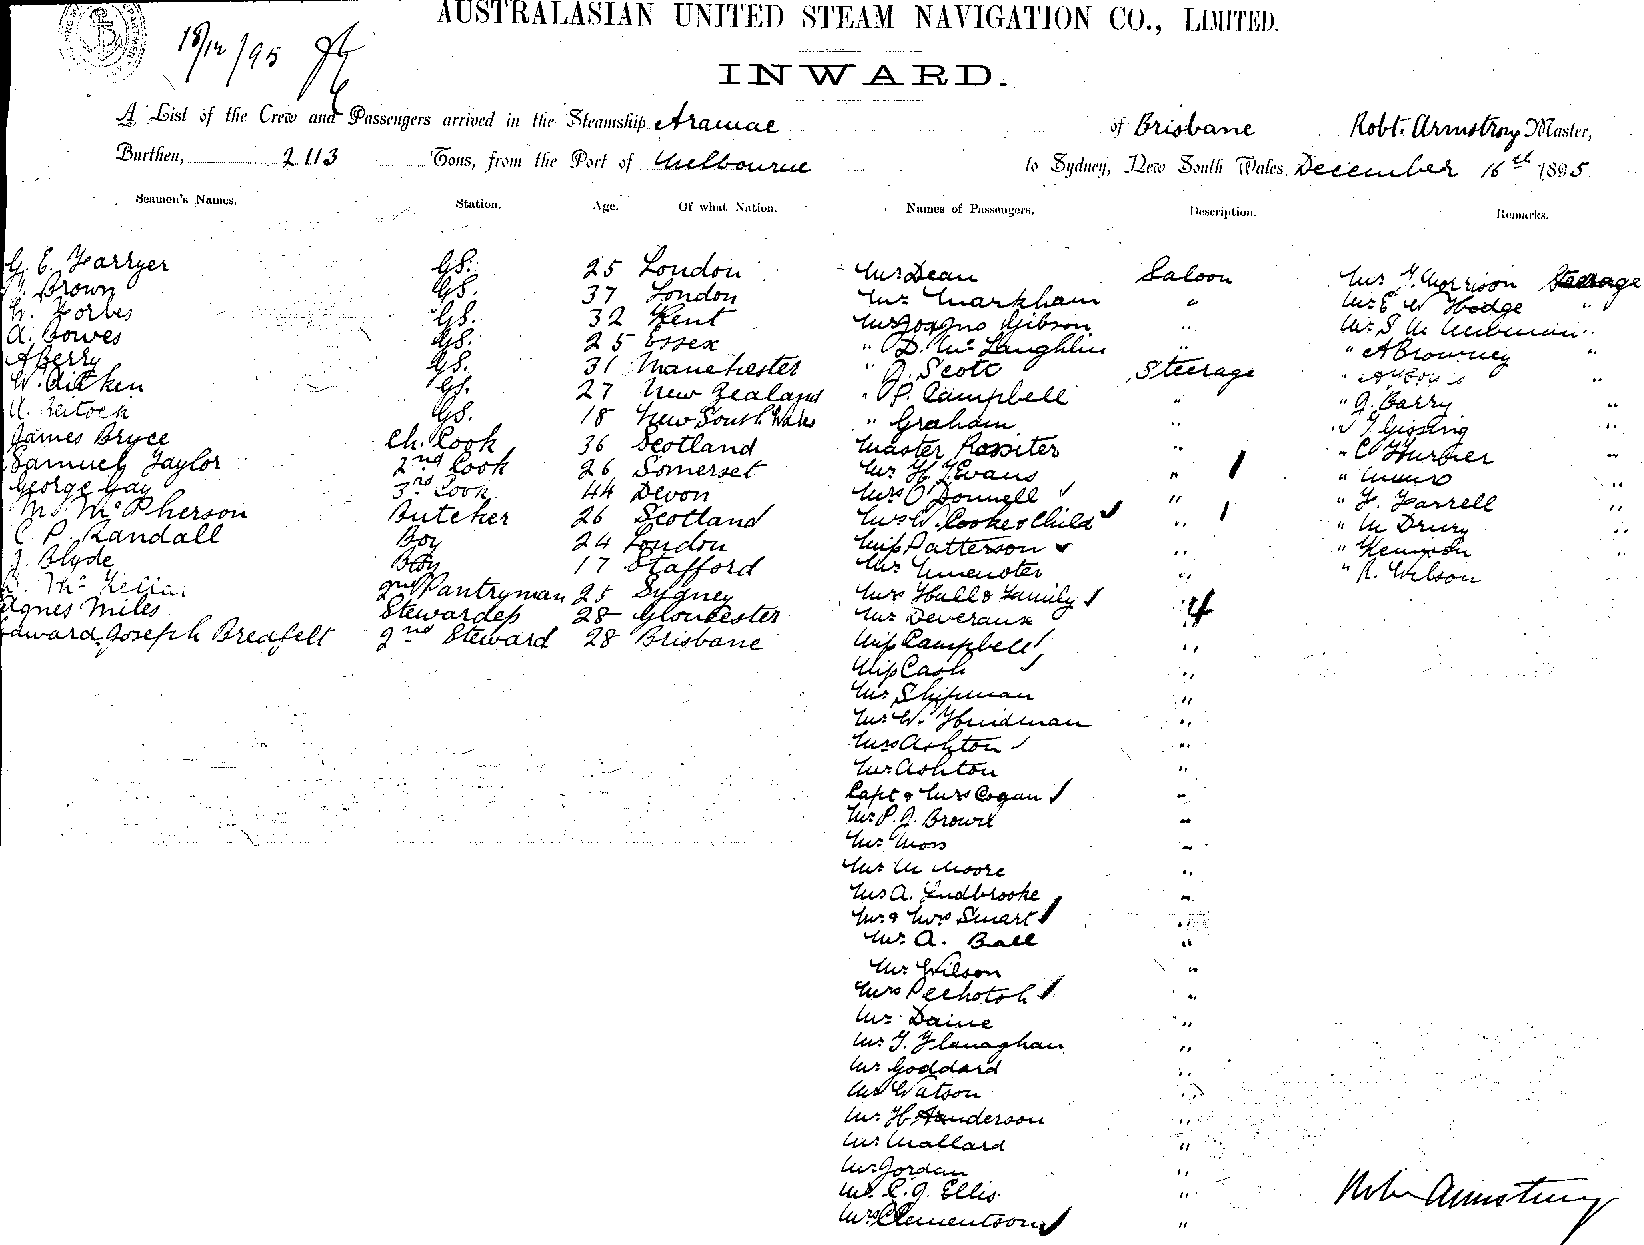 AUSTRALASIAN UNITED STEAM NAVIGATION CO., LIMITED.
18/12/95
INWARD.
A List of the Crew and Passengers arrived in the Steamship Aramac of Brisbane Robt. Armstrong Master,
Burthen, 2113 Tons, from the Port of Melbourne to Sydney, New South Wales, December 16th 1895.
Seamen's Names. Station. Age. Of what Nation. Names of Passengers. Description. Remarks.
G. E. Farryer GS. 25 London
Brown GS. 37 London
Forbes GS. 32 Kent
A. Bowes GS. 25 Essex
A Berry GS. 31 Manchester
W. Aitken GS. 27 New Zealand
GS. 18 New South Wales
James Bryce Ch. Cook 36 Scotland
Samuel Taylor 2nd Cook 26 Somerset
George Gay 3rd Cook 44 Devon
M. McPherson Butcher 26 Scotland
C. P. Randall Boy 24 London
J. Clyde Boy 17 Stafford
2nd Pantryman 25 Sydney
Agnes Miles Stewardess 28 Gloucester
Edward Joseph Breafelt 2nd Steward 28 Brisbane
Mr Dean Saloon
Mr Markham "
Gibson "
" D. McLaughlin "
" J. Scott Steerage
" P. Campbell "
" Graham "
Master Rossiter "
Mr H. Evans " 1
Mrs O'Donnell "
Mrs W. Cooke & Child " 1
Miss Patterson "
Mr "
Mrs Hall & Family " 4
Mr Deveraux
Miss Campbell "
Miss Cash "
Mr Shipman "
Mr W. Hindman "
Mrs Ashton "
Mr Ashton "
Capt & Mrs Cogan "
Mr P. J. Brown "
Mr Moss "
Mr M Moore "
Mr A. Ludbrooke "
Mr & Mrs Stuart "
Mr A. Ball "
Mr Wilson "
Mrs Pechotch "
Mr Daine "
Mr T. Flanaghan "
Mr Goddard "
Mr Watson "
Mr H Henderson "
Mr Mallard "
Mr Jordan "
Mr C. J. Ellis "
Mrs Clementson "
Mr Morrison Steerage
Mr E W Hodge "
Mr S M "
" A Browney "
" "
" J. Barry "
" Gissing "
" C "
" Munro "
" F. Farrell "
" M Drury
" Kennon
" R. Wilson
Robt Armstrong